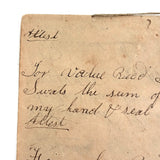 Attest
For Value Recd
Swals the sum of
my hand & seal
Attest